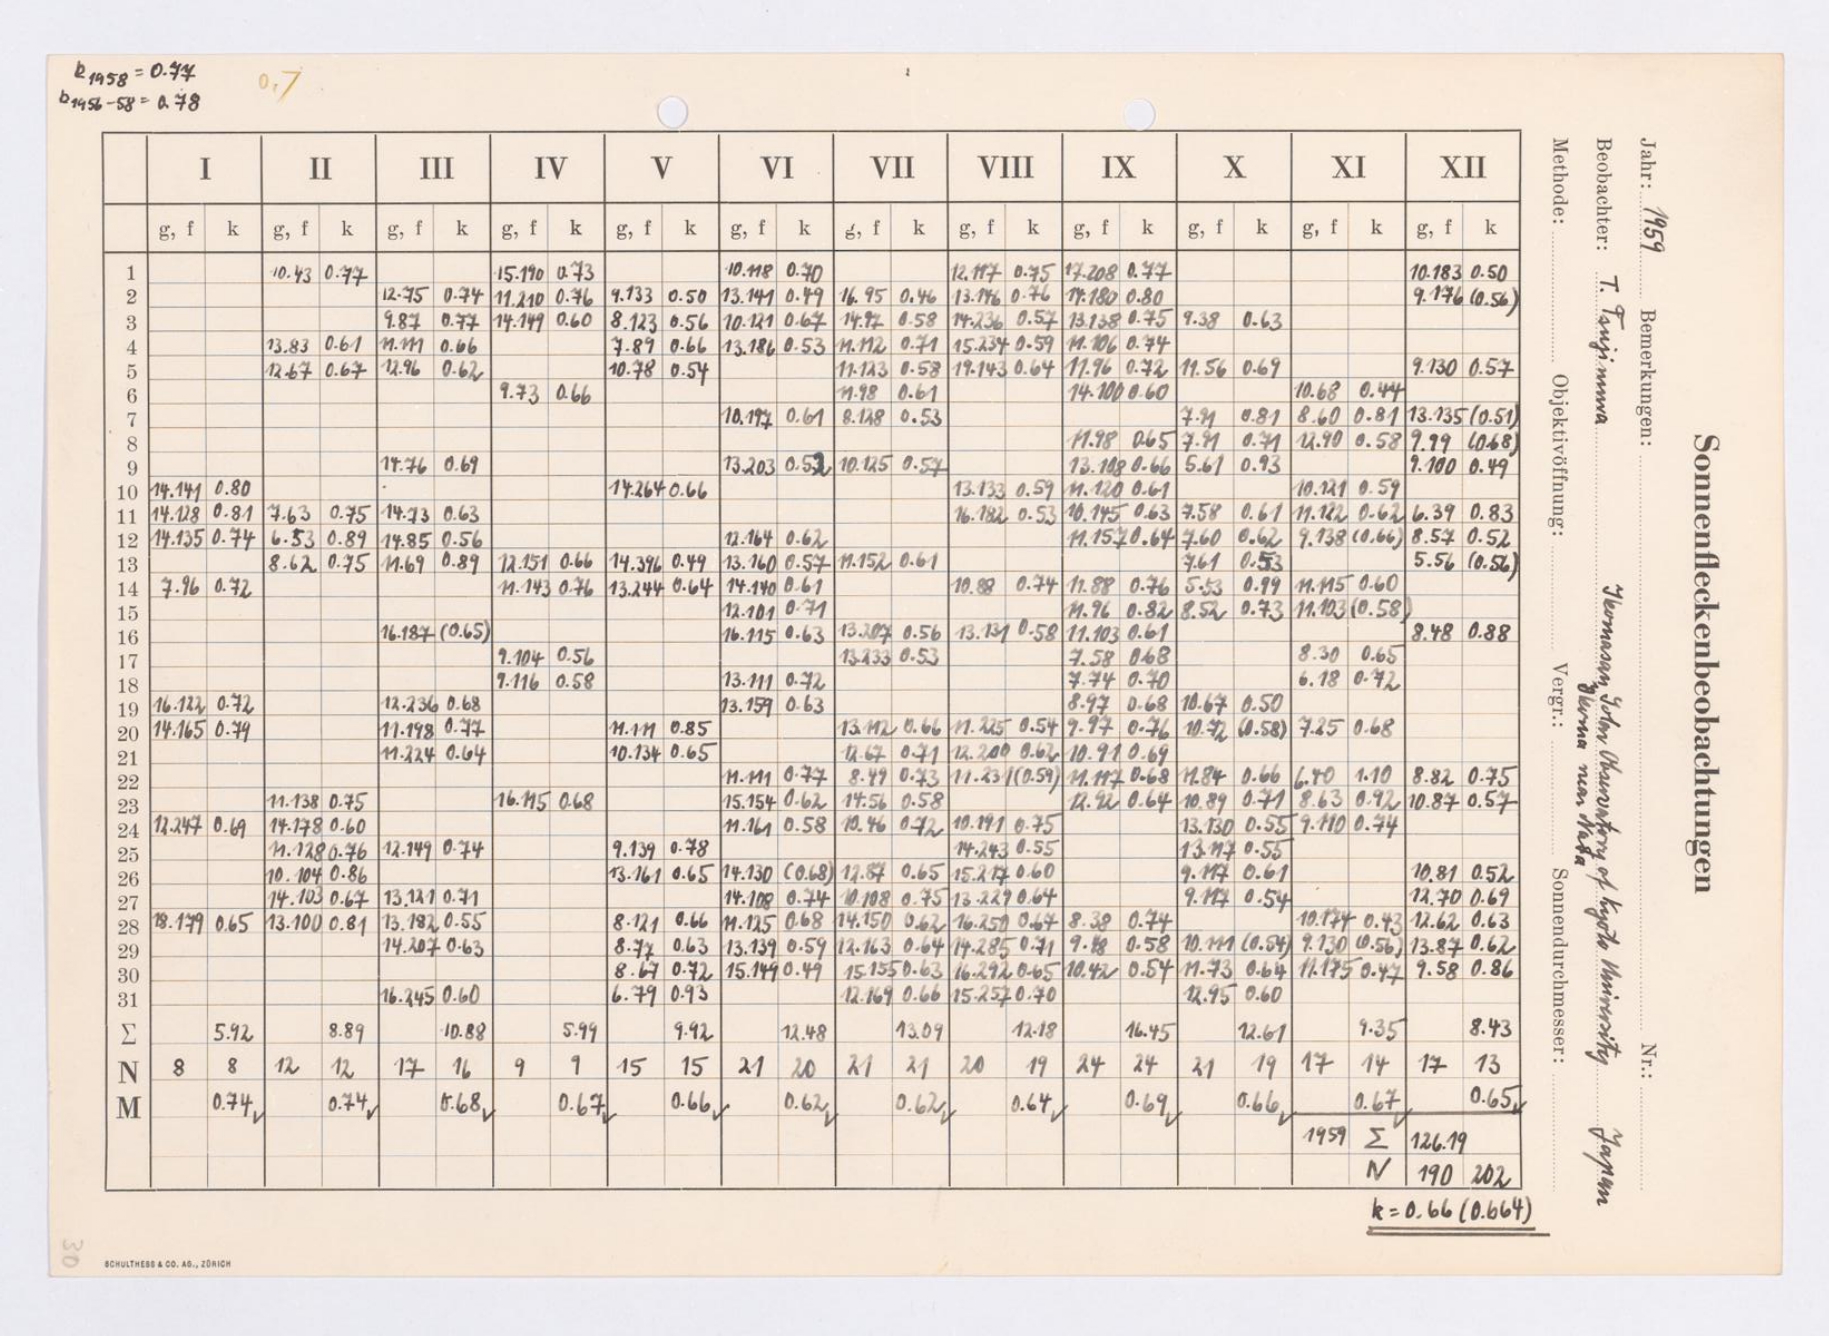 k1958 = 0.77
k1956-58 = 0.78
0.7
I II III IV V VI VII VIII IX X XI XII
g, f k g, f k g, f k g, f k g, f k g, f k g, f k g, f k g, f k g, f k g, f k g, f k
1 10.43 0.77 15.190 0.73 10.118 0.70 12.117 0.75 17.208 0.77 10.183 0.50
2 12.75 0.74 11.210 0.76 9.133 0.50 13.141 0.49 16.95 0.46 13.146 0.76 14.180 0.80 9.176 (0.56)
3 9.87 0.77 14.149 0.60 8.123 0.56 10.121 0.67 14.97 0.58 14.236 0.57 13.138 0.75 9.38 0.63
4 13.83 0.61 11.111 0.66 7.89 0.66 13.186 0.53 11.112 0.71 15.234 0.59 11.106 0.74
5 12.67 0.67 12.96 0.62 10.78 0.54 11.123 0.58 19.143 0.64 11.96 0.72 11.56 0.69 9.130 0.57
6 9.73 0.66 11.98 0.61 14.100 0.60 10.68 0.44
7 10.197 0.61 8.128 0.53 7.91 0.81 8.60 0.81 13.135 (0.51)
8 11.98 0.65 7.91 0.71 12.90 0.58 9.99 (0.68)
9 14.76 0.69 13.203 0.52 10.125 0.57 13.108 0.66 5.61 0.93 9.100 0.49
10 14.141 0.80 14.264 0.66 13.133 0.59 11.120 0.61 10.121 0.59
11 14.128 0.81 7.63 0.75 14.73 0.63 16.182 0.53 10.145 0.63 7.58 0.61 11.122 0.62 6.39 0.83
12 14.135 0.74 6.53 0.89 14.85 0.56 12.164 0.62 11.157 0.64 7.60 0.62 9.138 (0.66) 8.57 0.52
13 8.62 0.75 11.69 0.89 12.151 0.66 14.396 0.49 13.160 0.57 11.152 0.61 7.61 0.53 5.56 (0.56)
14 7.96 0.72 11.143 0.76 13.244 0.64 14.140 0.61 10.88 0.74 11.88 0.76 5.53 0.99 11.115 0.60
15 12.101 0.71 11.96 0.82 8.52 0.73 11.103 (0.58)
16 16.187 (0.65) 16.115 0.63 13.207 0.56 13.131 0.58 11.103 0.61 8.48 0.88
17 9.104 0.56 13.233 0.53 7.58 0.68 8.30 0.65
18 9.116 0.58 13.111 0.72 7.74 0.70 6.18 0.72
19 16.122 0.72 12.236 0.68 13.159 0.63 8.97 0.68 10.67 0.50
20 14.165 0.79 11.198 0.77 11.111 0.85 13.112 0.66 11.225 0.54 9.97 0.76 10.72 (0.58) 7.25 0.68
21 11.224 0.64 10.134 0.65 12.67 0.71 12.200 0.62 10.91 0.69
22 11.111 0.77 8.49 0.73 11.231 (0.59) 11.117 0.68 11.84 0.66 6.40 1.10 8.82 0.75
23 11.138 0.75 16.115 0.68 15.154 0.62 14.56 0.58 12.92 0.64 10.89 0.71 8.63 0.92 10.87 0.57
24 12.247 0.69 14.178 0.60 11.161 0.58 10.46 0.72 10.191 0.75 13.130 0.55 9.110 0.74
25 11.128 0.76 12.149 0.74 9.139 0.78 14.243 0.55 13.117 0.55
26 10.104 0.86 13.161 0.65 14.130 (0.68) 12.87 0.65 15.217 0.60 9.117 0.61 10.81 0.52
27 14.103 0.67 13.121 0.71 14.108 0.74 10.108 0.75 13.229 0.64 9.117 0.54 12.70 0.69
28 18.179 0.65 13.100 0.81 13.182 0.55 8.121 0.66 11.125 0.68 14.150 0.62 16.250 0.67 8.38 0.74 10.174 0.43 12.62 0.63
29 14.207 0.63 8.77 0.63 13.139 0.59 12.163 0.64 14.285 0.71 9.48 0.58 10.111 (0.54) 9.130 (0.56) 13.87 0.62
30 8.67 0.72 15.149 0.49 15.155 0.63 16.292 0.65 10.42 0.54 11.73 0.64 11.175 0.47 9.58 0.86
31 16.245 0.60 6.79 0.93 12.169 0.66 15.257 0.70 12.95 0.60
Σ 5.92 8.89 10.88 5.99 9.92 12.48 13.09 12.18 16.45 12.61 9.35 8.43
N 8 8 12 12 17 16 9 9 15 15 21 20 21 21 20 19 24 24 21 19 17 14 17 13
M 0.74 0.74 0.68 0.67 0.66 0.62 0.62 0.64 0.69 0.66 0.67 0.65
1959 Σ 126.19
N 190 202
k = 0.66 (0.664)
Sonnenfleckenbeobachtungen
Jahr: 1959 Bemerkungen: Nr.:
Beobachter: T. Tsujimura Ikomasan Solar Observatory of Kyoto University Japan
Ikoma near Nara
Methode: Objektivöffnung: Vergr.: Sonnendurchmesser:
30
SCHULTHESS & CO. AG., ZÜRICH